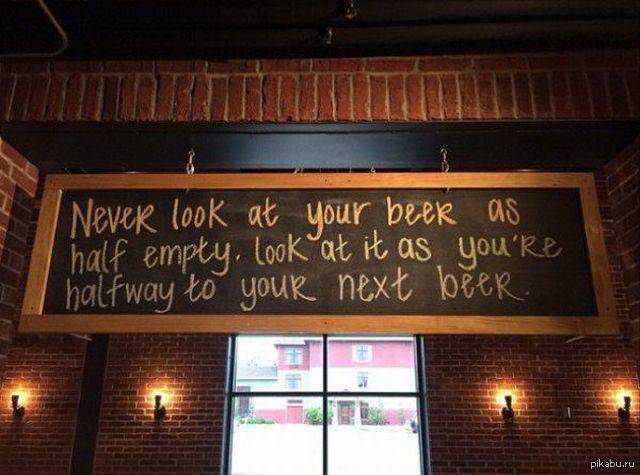 Never look at your beer as
half empty. look at it as you're
halfway to your next beer.
pikabu.ru